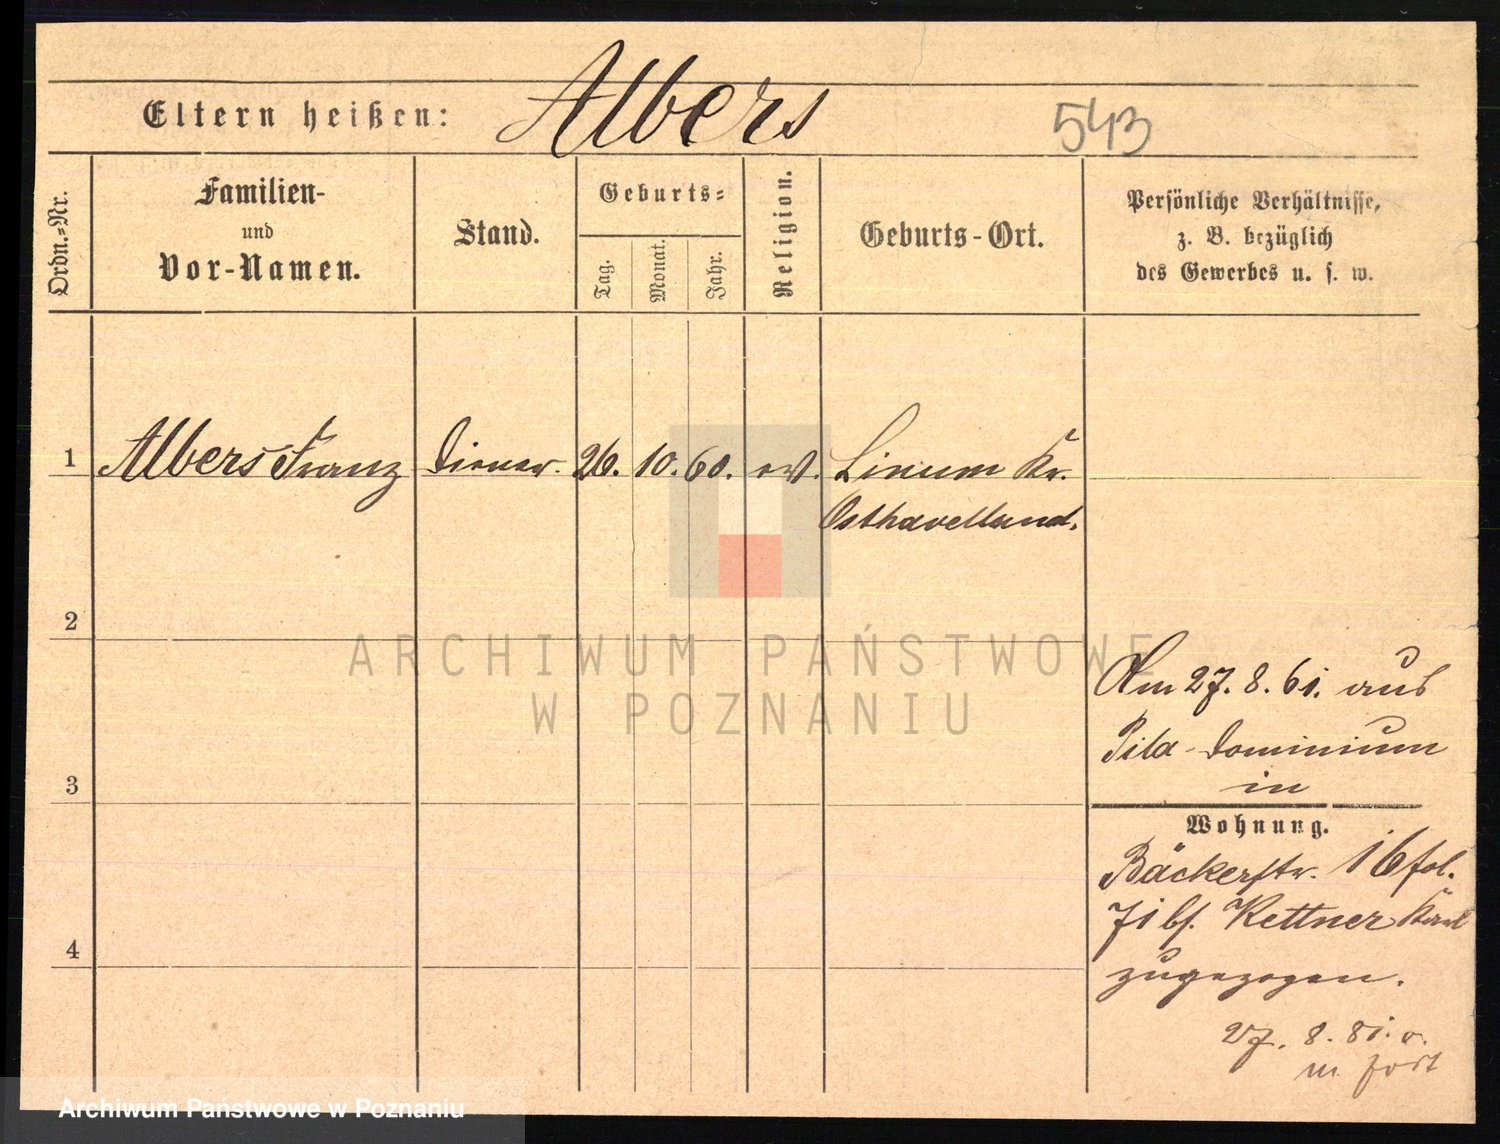 Eltern heißen: Albers 543
Ordn.-Nr.
Familien-
und
Vor-Namen.
Stand.
Geburts-
Tag.
Monat.
Jahr.
Religion.
Geburts-Ort.
Persönliche Verhältnisse,
z. B. bezüglich
des Gewerbes u. s. w.
1 Albers Franz Diener. 26. 10. 60. ev. Linum Kr.
Osthavelland.
2
ARCHIWUM PAŃSTWOWE
W POZNANIU
Am 27. 8. 61. aus
Pila-Dominium
in
3
Wohnung.
Bäckerstr. 16 fol.
71 bs. Kettner
4
zugezogen.
27. 8. 81. v.
fort
Archiwum Państwowe w Poznaniu